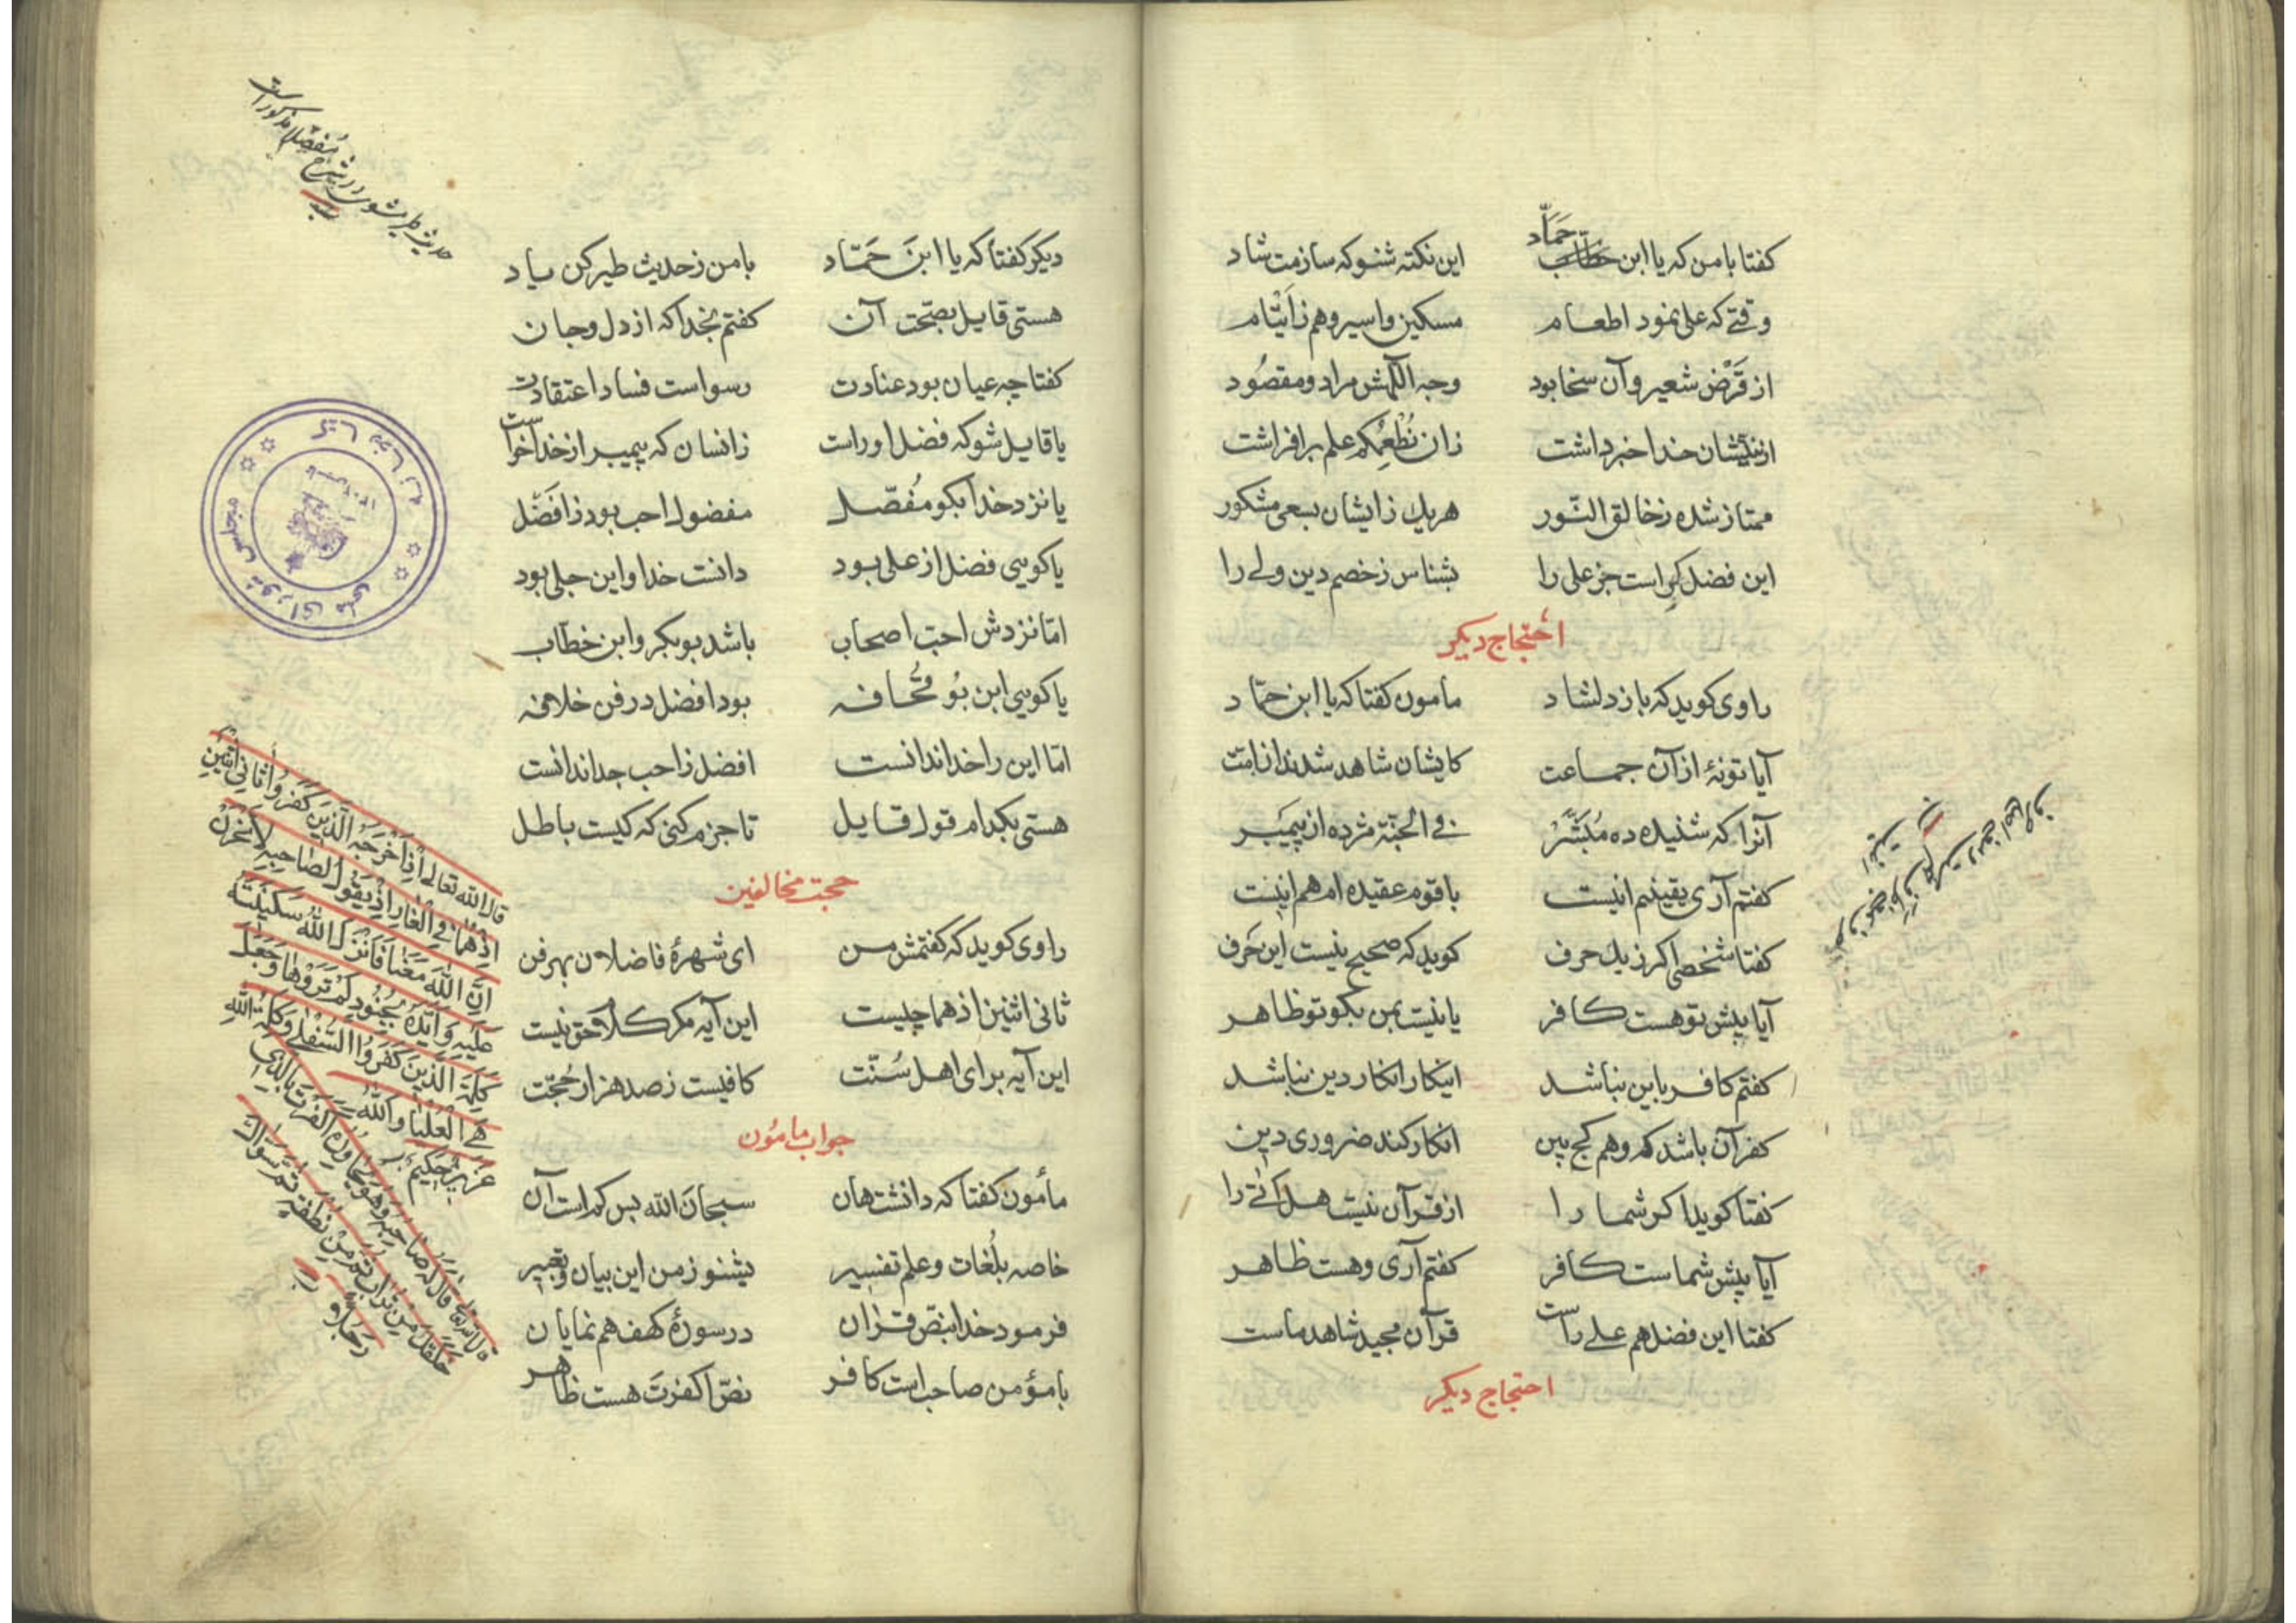 کفتا بامن که یا ابن حَمّاد این نکته شنو که سازمت شاد
وقتے که علی نمود اطعام مسکین و اسیر و هم ز ایتام
از قَرْض شعیر و آن سخا بود وجه اللّهش مراد و مقصُود
خدا خبر داشت زان نُطْعِمُکُم علم برافراشت
ممتاز شده ز خالق النّور هریك زایشان بسعی مشکور
این فضل کراست جز علی را بشناس ز خصم دین ولے را
احتجاج دیکر
راوی کوید که باز دلشاد مأمون کفتا که یا ابن حمّاد
آیا تو نهٔ از آن جماعت کایشان شاهد شدند از امّت
آنرا که شنید ده مُبَشَّرْ فی الجنّة مژده از پیمَبر
کفتم آری یقینم اینست باقوم عقیده ام هم اینست
کفتا شخصی اکر زیك حرف کوید که صحیح نیست این حَرف
آیا پیش تو هست کافر یا نیست بمن بکو تو ظاهر
کفتم کافر باین نباشد اینکار انکار دین نباشد
کفر آن باشد که وهم کج بین انکار کند ضروری دین
کفتا کوید اکر شما را از قرآن نیست هل اتی را
آیا پیش شماست کافر کفتم آری و هست ظاهر
کفتا این فضل هم علے راست قرآن مجید شاهد ماست
احتجاج دیکر
حدیث طیر مشوی در شرح مفصّلا مذکور است
دیکر کفتا که یا ابنَ حَمّاد بامن ز حدیث طیر کن یاد
هستی قایل بصحّت آن کفتم بخدا که از دل و جان
کفتا چه عیان بود عنادت رسواست فساد اعتقادت
یا قایل شو که فضل او راست زانسان که پیمبر از خدا خواست
یا نزد خدا بکو مُفصّل مفضول احب بود ز افضَل
یا کویی فضل از علی بود دانست خدا و این جلی بود
امّا نزدش احبّ اصحاب باشد بوبکر و ابن خطّاب
یا کویی ابن بُو قُحافه بود افضل در فن خلافه
امّا این را خدا ندانست افضل ز احب جدا ندانست
هستی بکدام قول قایل تا جزم کنی که کیست باطل
حجت مخالفین
راوی کوید که کفتمش من ای شهرهٔ فاضلان بهر فن
ثانی اثنین اذهما چیست این آیه مکر کلام حق نیست
این آیه برای اهل سُنّت کافیست ز صد هزار حُجّت
جواب مامُون
مأمون کفتا که دانشت هان سبحان الله بس کم است آن
خاصه بلُغات و علم تفسیر بشنو ز من این بیان و تعبیر
فرمود خدا بنصّ قرٰان در سورهٔ کهف هم نمایان
با مؤمن صاحب است کافر نصّ اکفرتَ هست ظاهر
قال الله تعالی اِذْ اَخْرَجَهُ الَّذینَ کَفَرُوا ثانِیَ اثْنَیْنِ
اِذْ هُمٰا فِی الْغٰارِ اِذْ یَقُولُ لِصٰاحِبِهِ لاٰ تَحْزَنْ
اِنَّ اللّٰهَ مَعَنٰا فَاَنْزَلَ اللّٰهُ سَکینَتَهُ
عَلَیْهِ وَ اَیَّدَهُ بِجُنُودٍ لَمْ تَرَوْهٰا وَ جَعَلَ
کَلِمَةَ الَّذینَ کَفَرُوا السُّفْلٰی وَ کَلِمَةُ اللّٰهِ
هِیَ الْعُلْیٰا وَ اللّٰهُ
عَزیزٌ حَکیمٌ
قال الله تعالی قٰالَ لَهُ صٰاحِبُهُ وَ هُوَ یُحٰاوِرُهُ اَکَفَرْتَ بِالَّذی
خَلَقَكَ مِنْ تُرٰابٍ ثُمَّ مِنْ نُطْفَةٍ ثُمَّ سَوّٰاكَ
رَجُلاً
کتابخانه مجلس شورای ملی